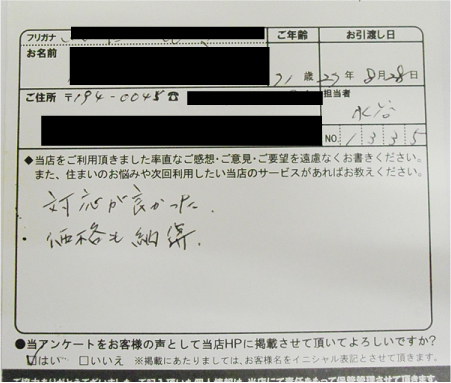 フリガナ
ご年齢
お引渡し日
お名前
31歳
23年8月28日
ご住所 〒194-0045 ☎
担当者
水谷
NO. 1335
◆当店をご利用頂きました率直なご感想・ご意見・ご要望を遠慮なくお書きください。
また、住まいのお悩みや次回利用したい当店のサービスがあればお教えください。
対応が良かった.
・価格も納得.
●当アンケートをお客様の声として当店HPに掲載させて頂いてよろしいですか?
☑はい □いいえ ※掲載にあたりましては、お客様名をイニシャル表記とさせて頂きます。
ご協力ありがとうございました。ご記入頂いた個人情報は、当店にて責任をもって保管管理させて頂きます。